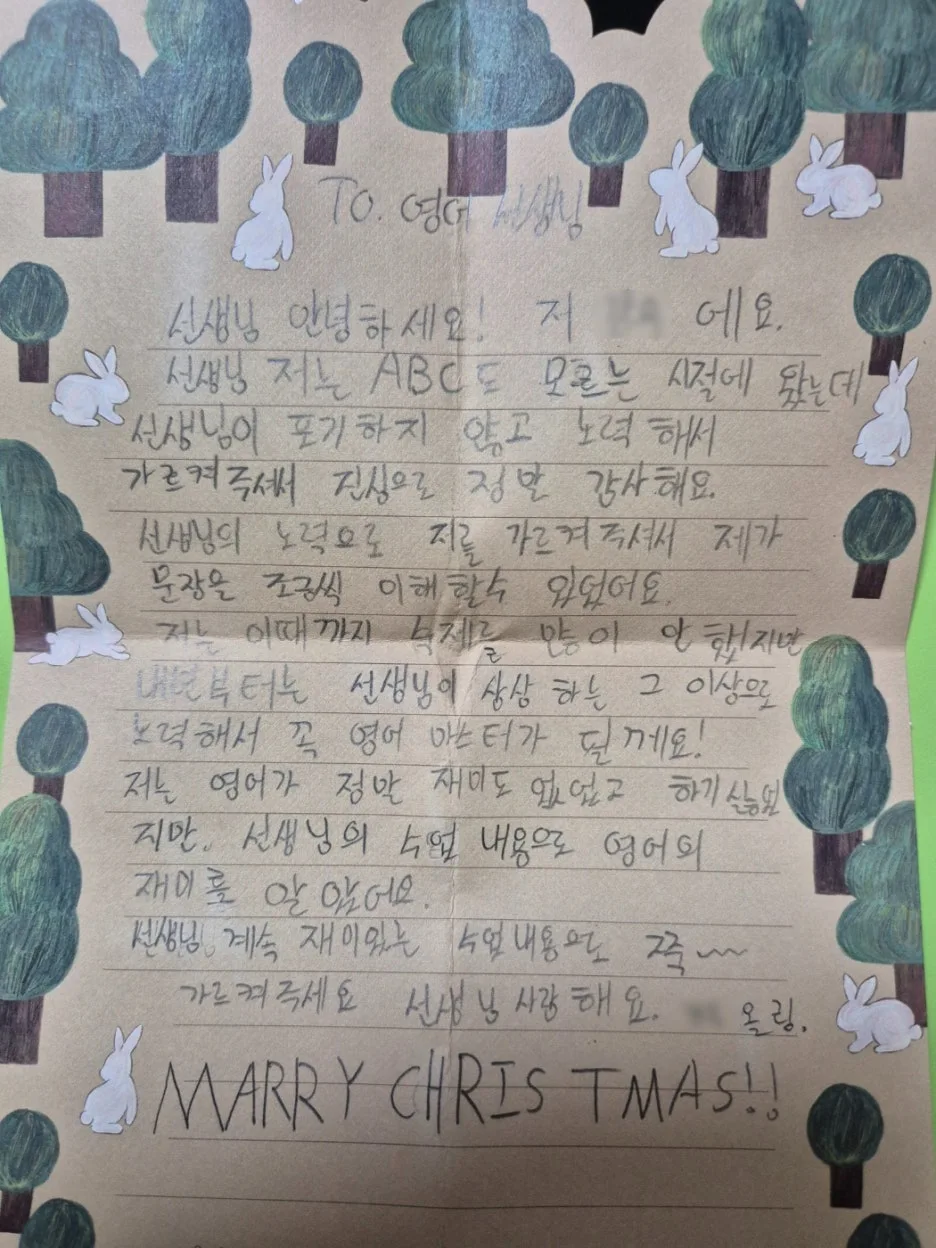 To. 영어 선생님
선생님 안녕하세요! 저 에요.
선생님 저는 ABC도 모르는 시절에 왔는데
선생님이 포기하지 않고 노력해서
가르켜주셔서 진심으로 정말 감사해요.
선생님의 노력으로 저를 가르켜주셔서 제가
문장을 조금씩 이해할수 있었어요.
저는 이때까지 숙제를 많이 안 했지만
내년부터는 선생님이 상상 하는 그 이상으로
노력해서 꼭 영어 마스터가 될께요!
저는 영어가 정말 재미도 없었고 하기 싫었
지만, 선생님의 수업 내용으로 영어의
재미를 알았어요.
선생님, 계속 재미있는 수업내용으로 쭉~~
가르켜주세요 선생님 사랑해요. 올림.
MARRY CHRISTMAS!!